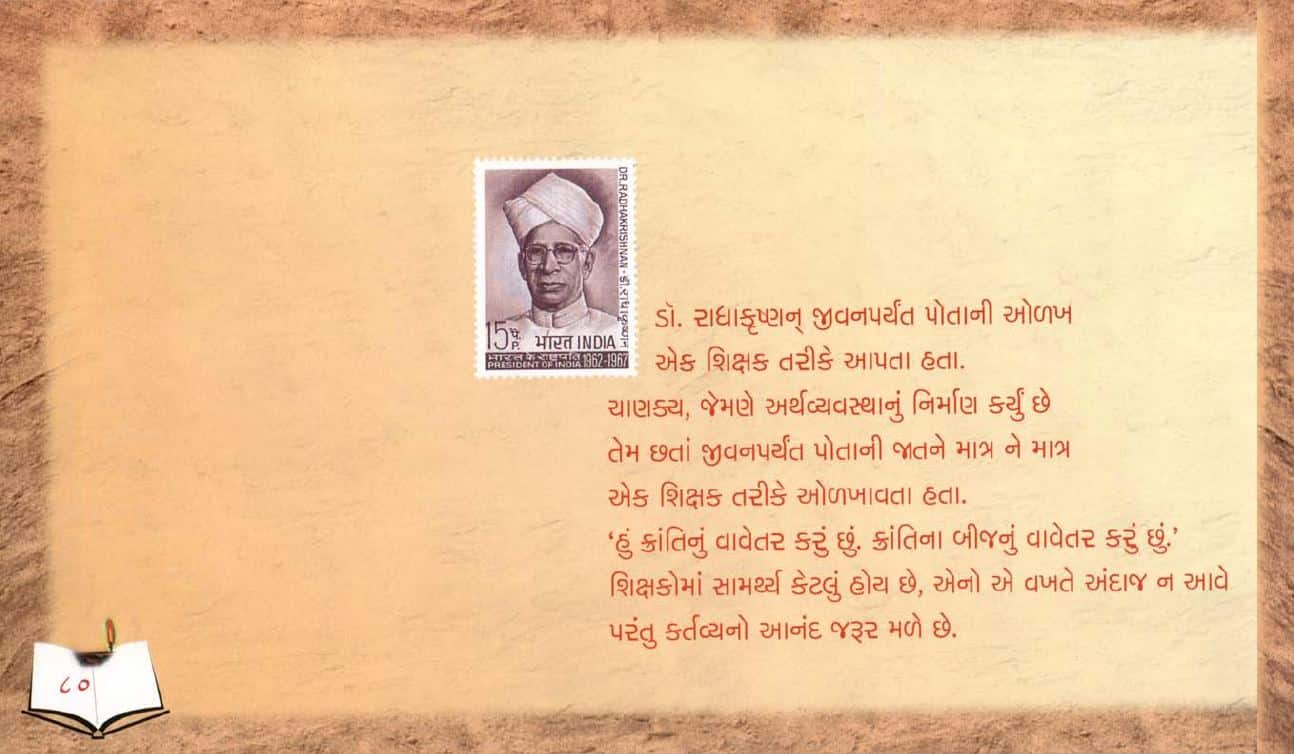 DR. RADHAKRISHNAN - डॉ. राधाकृष्णन
15 पै.
P.
भारत INDIA
भारत के राष्ट्रपति
PRESIDENT OF INDIA 1962-1967
ડૉ. રાધાકૃષ્ણન્ જીવનપર્યંત પોતાની ઓળખ
એક શિક્ષક તરીકે આપતા હતા.
ચાણક્ય, જેમણે અર્થવ્યવસ્થાનું નિર્માણ કર્યું છે
તેમ છતાં જીવનપર્યંત પોતાની જાતને માત્ર ને માત્ર
એક શિક્ષક તરીકે ઓળખાવતા હતા.
‘હું ક્રાંતિનું વાવેતર કરું છું. ક્રાંતિના બીજનું વાવેતર કરું છું.’
શિક્ષકોમાં સામર્થ્ય કેટલું હોય છે, એનો એ વખતે અંદાજ ન આવે
પરંતુ કર્તવ્યનો આનંદ જરૂર મળે છે.
૮૦